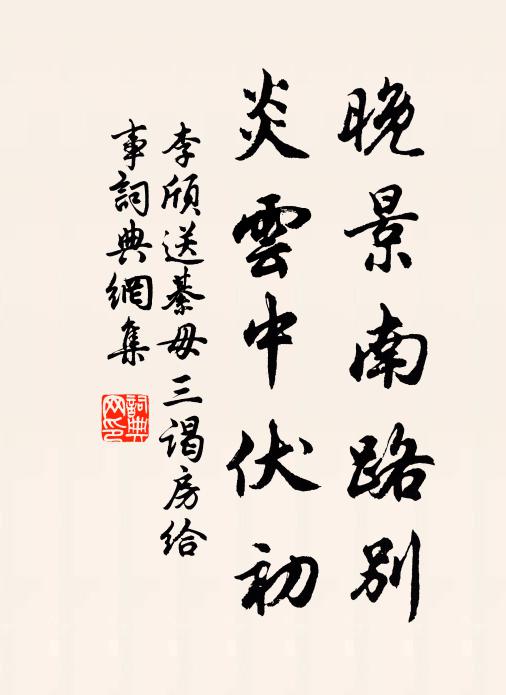 晚景南路別
炎雲中伏初
李頎送綦毋三謁房給
事詞典網集
詞典
网印